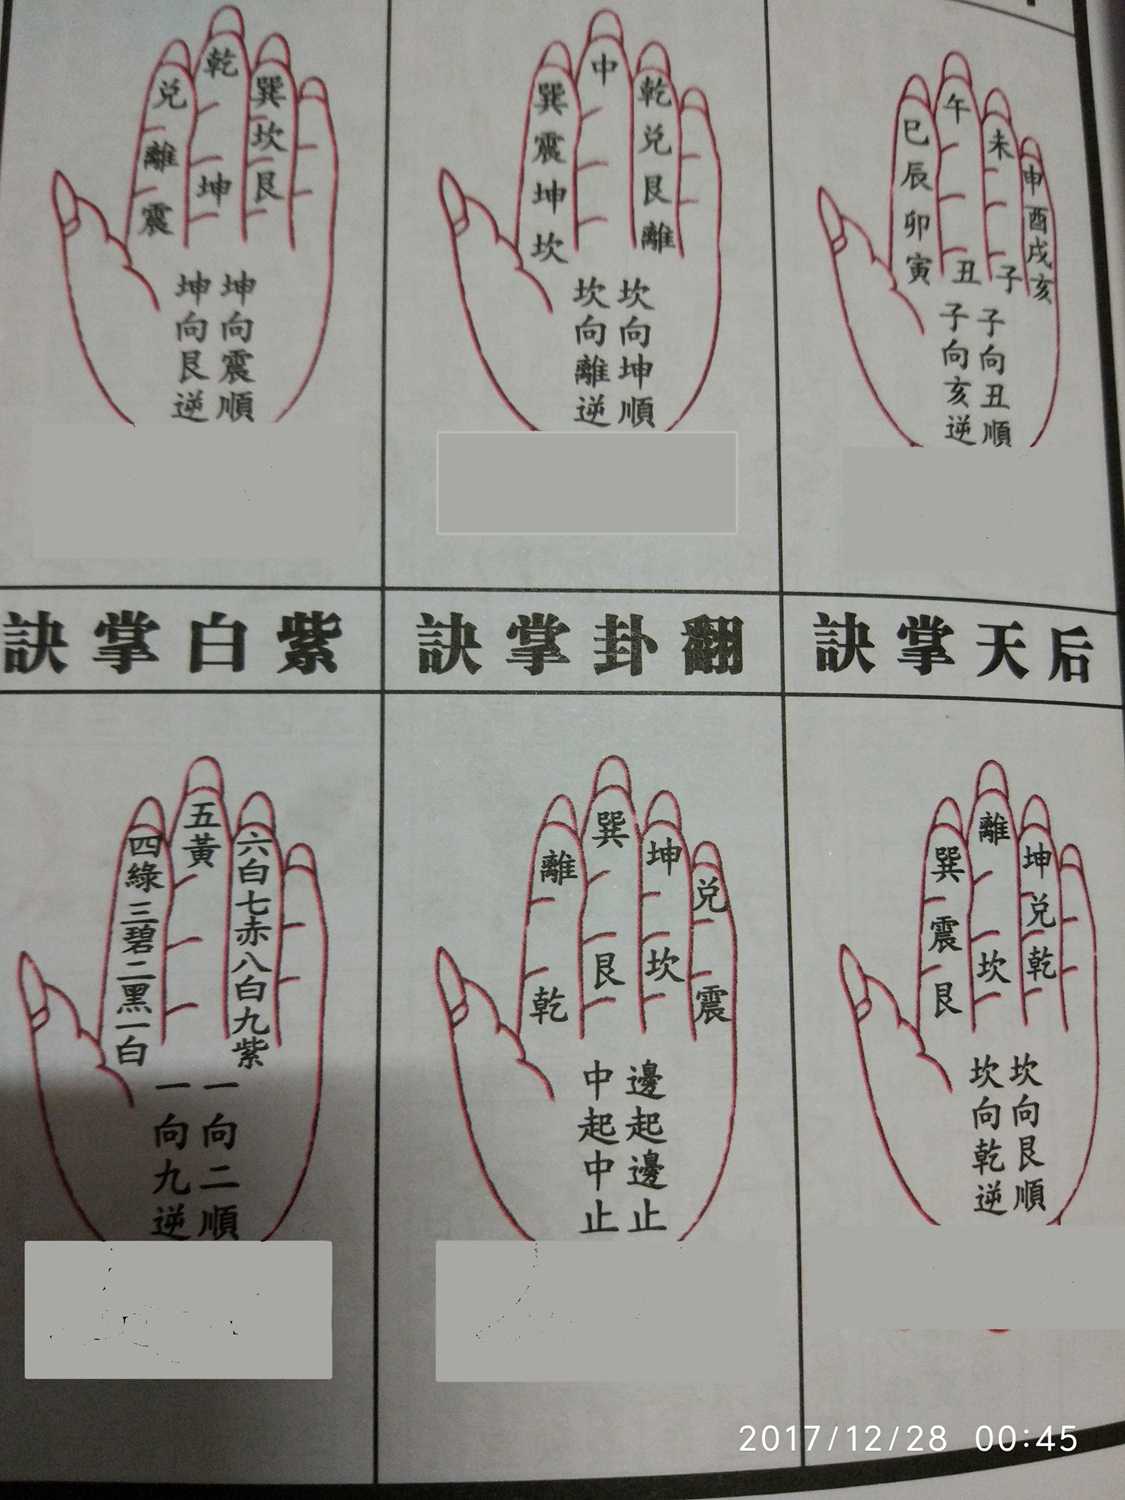 申酉戌亥
未子
午丑
巳辰卯寅
子向丑順
子向亥逆
乾兌艮離
中
巽震坤坎
坎向坤順
坎向離逆
巽坎艮
乾坤
兌離震
坤向震順
坤向艮逆
后天掌訣
翻卦掌訣
紫白掌訣
坤兌乾
離坎
巽震艮
坎向艮順
坎向乾逆
兌震
坤坎
巽艮
離乾
邊起邊止
中起中止
六白七赤八白九紫
五黃
四綠三碧二黑一白
一向二順
一向九逆
2017/12/28 00:45